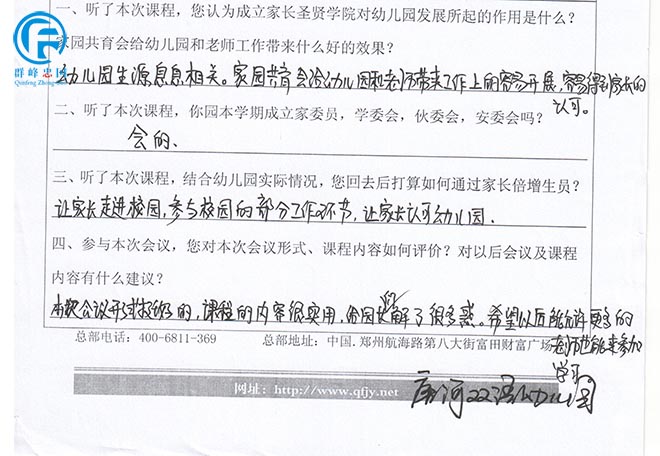 一、听了本次课程，您认为成立家长圣贤学院对幼儿园发展所起的作用是什么？
家园共育会给幼儿园和老师工作带来什么好的效果？
群峰忠国
幼儿园生源息息相关。家园共育会给幼儿园和老师带来工作上的容易开展，容易得到家长的
认可。
二、听了本次课程，你园本学期成立家委员，学委会，伙委会，安委会吗？
会的、
三、听了本次课程，结合幼儿园实际情况，您回去后打算如何通过家长倍增生员？
让家长走进校园，参与校园的部分工作环节，让家长认可幼儿园．
四、参与本次会议，您对本次会议形式、课程内容如何评价？对以后会议及课程
内容有什么建议？
本次会议开 的，课程的内容很实用，给园长解了很多惑。希望以后能允许更多的
老师也能来参加
学习
总部电话：400-6811-369 总部地址：中国.郑州航海路第八大街富田财富广场
网址：http://www.qfjy.net
唐河双语幼儿园